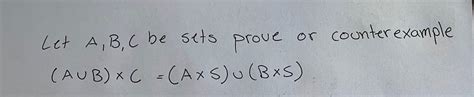 Let A, B, C be sets prove or counterexample
(A∪B) × C = (A×S)∪(B×S)